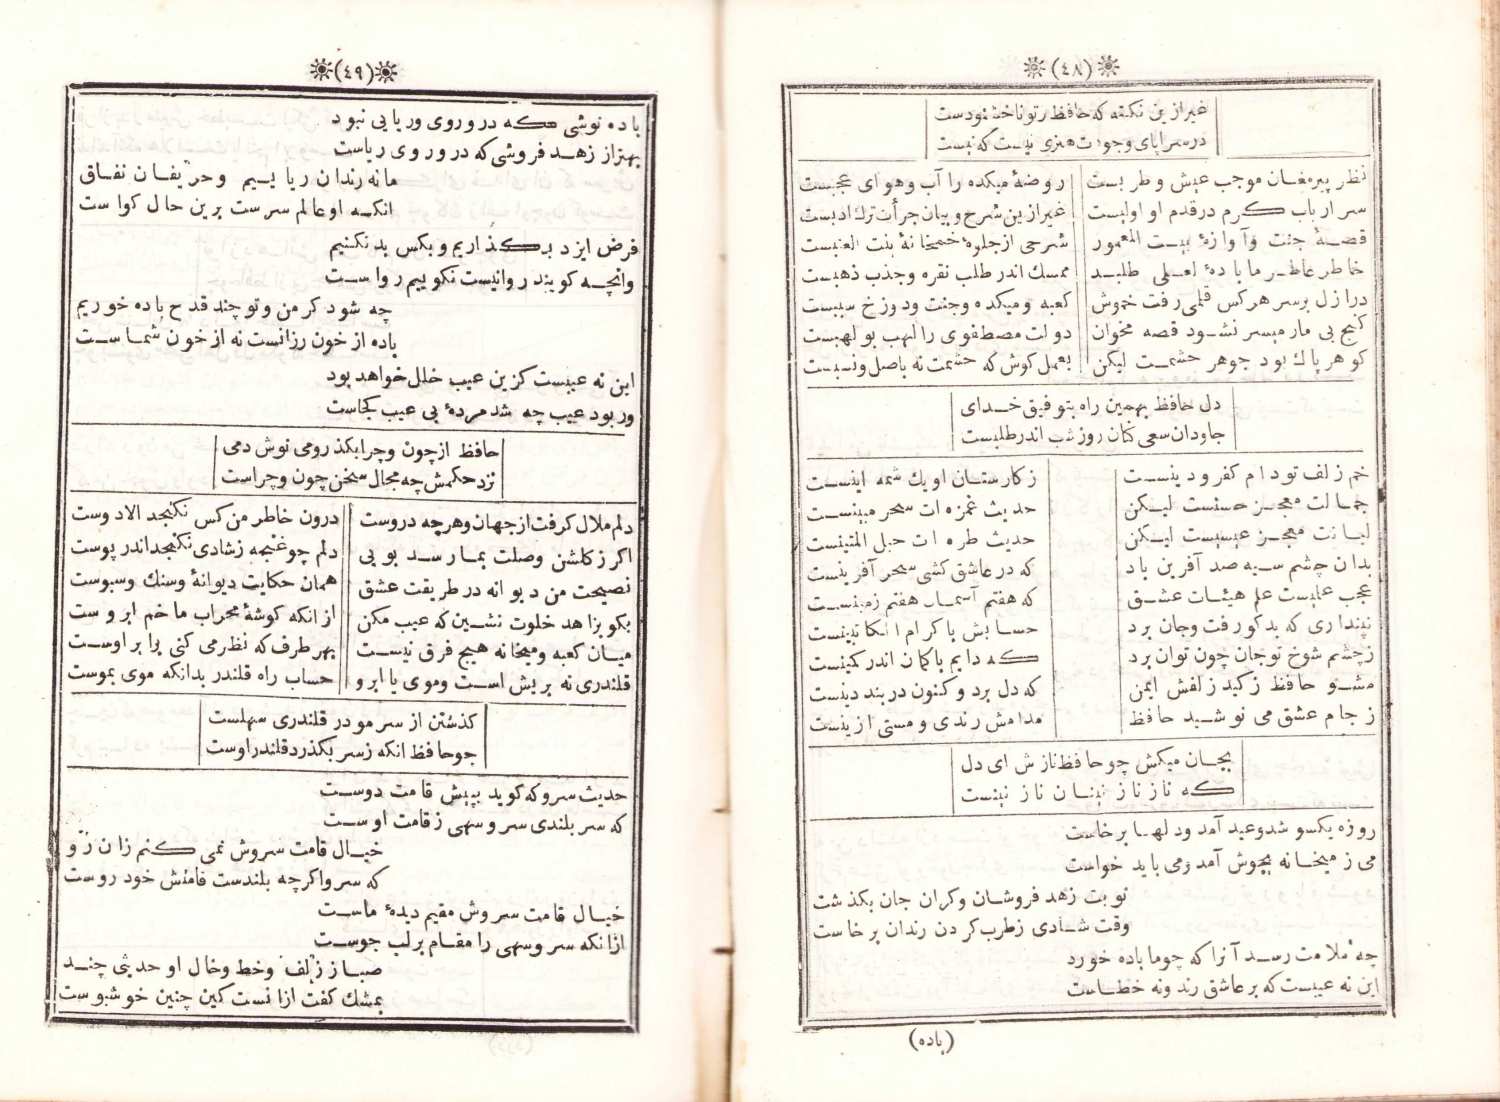 (٤٨)
غیر ازین نکته که حافظ زتو ناخشنودست
در سراپای وجودت هنری نیست که نیست
نظر پیرمغان موجب عیش و طربست روضهٔ میکده را آب وهوای عجبست
سر ارباب کرم در قدم او اولیست غیر ازین شرح و بیان جرأت ترك ادبست
قصهٔ جنت وآوازهٔ بیت المعمور شرحی از جلوهٔ خمخانهٔ بنت العنبست
خاطر عاطر ما بادهٔ لعلی طلبد ممسك اندر طلب نقره وجذب ذهبست
در ازل برسر هرکس قلمی رفت خموش کعبه ومیکده وجنت ودوزخ سببست
کنج بی مار میسر نشود قصه مخوان دولت مصطفوی را لهب بولهبست
کوهر پاك بود جوهر حشمت لیکن بعمل کوش که حشمت نه باصل ونسبست
دل حافظ بهمین راه بتوفیق خدای
جاودان سعی کنان روز شب اندر طلبست
خم زلف تو دام کفر ودینست زکارستان او یك شمه اینست
جمالت معجز حسنست لیکن حدیث غمزه ات سحر مبینست
لبانت معجز عیسیست لیکن حدیث طره ات حبل المتینست
بدان چشم سیه صد آفرین باد که در عاشق کشی سحر آفرینست
عجب علمیست علم هیئات عشق که هفتم آسمان هفتم زمینست
نپنداری که بدکو رفت وجان برد حسابش با کرام الکاتبینست
زچشم شوخ تو جان چون توان برد که دایم با کمان اندر کمینست
مشو حافظ زکید زلفش ایمن که دل برد وکنون در بند دینست
زجام عشق می نوشید حافظ مدامش رندی ومستی ازینست
بجان میکش چو حافظ نازش ای دل
که ناز نازنینان نازنینست
روزه یکسو شد وعید آمد ودلها برخاست
می زمیخانه بجوش آمد ومی باید خواست
نوبت زهد فروشان وکران جان بکذشت
وقت شادی زطرب کردن رندان برخاست
چه ملامت رسد آنرا که چو ما باده خورد
این نه عیبست که بر عاشق رند ونه خطاست
(باده)
(٤٩)
باده نوشی که درو روی وریایی نبود
بهتر از زهد فروشی که درو روی ریاست
ما نه رندان ریاییم وحریفان نفاق
انکه او عالم سرست برین حال کواست
فرض ایزد بکذاریم وبکس بد نکنیم
وانچه کویند روانیست نکوییم رواست
چه شود کر من وتو چند قدح باده خوریم
باده از خون رزانست نه از خون شماست
این نه عیبست کزین عیب خلل خواهد بود
ور بود عیب چه شد مردهٔ بی عیب کجاست
حافظ از چون وچرا بکذر ومی نوش دمی
نزد حکمش چه مجال سخن چون وچراست
دلم ملال کرفت از جهان وهرچه دروست درون خاطر من کس نکنجد الا دوست
اکر زکلشن وصلت بما رسد بویی دلم چو غنچه زشادی نکنجد اندر پوست
نصیحت من دیوانه در طریقت عشق همان حکایت دیوانهٔ وسنك وسبوست
بکو بزاهد خلوت نشین که عیب مکن از انکه کوشهٔ محراب ما خم ابروست
میان کعبه ومیخانه هیچ فرق نیست بهر طرف که نظر می کنی برابر اوست
قلندری نه بریش است وموی یا ابرو حساب راه قلندر بدانکه موی بموست
کذشتن از سر مو در قلندری سهلست
چو حافظ انکه زسر بکذرد قلندر اوست
حدیث سرو که کوید بپیش قامت دوست
که سر بلندی سرو سهی زقامت اوست
خیال قامت سروش نمی کنم زان رو
که سرو اکرچه بلندست قامتش خود روست
خیال قامت سروش مقیم دیدهٔ ماست
ازانکه سرو سهی را مقام بر لب جوست
صبا ز زلف وخط وخال او حدیثی چند
بمشك کفت ازانست کین چنین خوشبوست